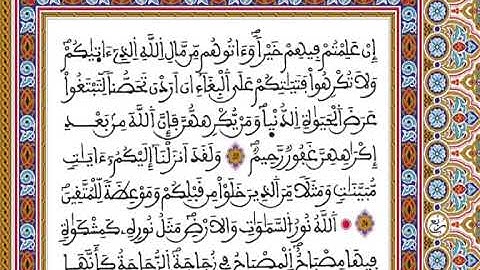 إِنْ عَلِمْتُمْ فِيهِمْ خَيْراً وَءَاتُوهُم مِّن مَّالِ اِ۬للَّهِ اِ۬لذِےٓ ءَات۪يٰكُمْ
وَلَا تُكْرِهُواْ فَتَيَٰتِكُمْ عَلَى اَ۬لْبِغَآءِ انَ اَرَدْنَ تَحَصُّناً لِّتَبْتَغُواْ
عَرَضَ اَ۬لْحَيَوٰةِ اِ۬لدُّنْي۪ا وَمَنْ يُّكْرِههُّنَّ فَإِنَّ اَ۬للَّهَ مِنۢ بَعْدِ
إِكْرَٰهِهِنَّ غَفُورٌ رَّحِيمٌ وَلَقَدَ اَنزَلْنَآ إِلَيْكُمُۥٓ ءَايَٰتٖ
مُّبَيَّنَٰتٖ وَمَثَلاً مِّنَ اَ۬لذِينَ خَلَوْاْ مِن قَبْلِكُمْ وَمَوْعِظَةً لِّلْمُتَّقِينَ
اَ۬للَّهُ نُورُ اُ۬لسَّمَٰوَٰتِ وَالَارْضِ مَثَلُ نُورِهِۦ كَمِشْكَوٰةٖ
فِيهَا مِصْبَاحٌ اِ۬لْمِصْبَاحُ فِے زُجَاجَةٍ اِ۬لزُّجَاجَةُ كَأَنَّهَا